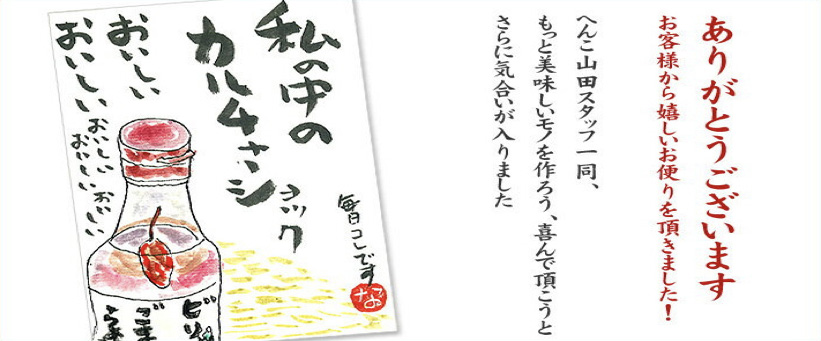 ありがとうございます
お客様から嬉しいお便りを頂きました!
へんこ山田スタッフ一同、
もっと美味しいモノを作ろう、喜んで頂こうと
さらに気合いが入りました
私の中の
カルチャーショック
おいしい
おいしい
おいしい おいしい
おいしい
毎日コレです
ピリ
ごま
らぁ